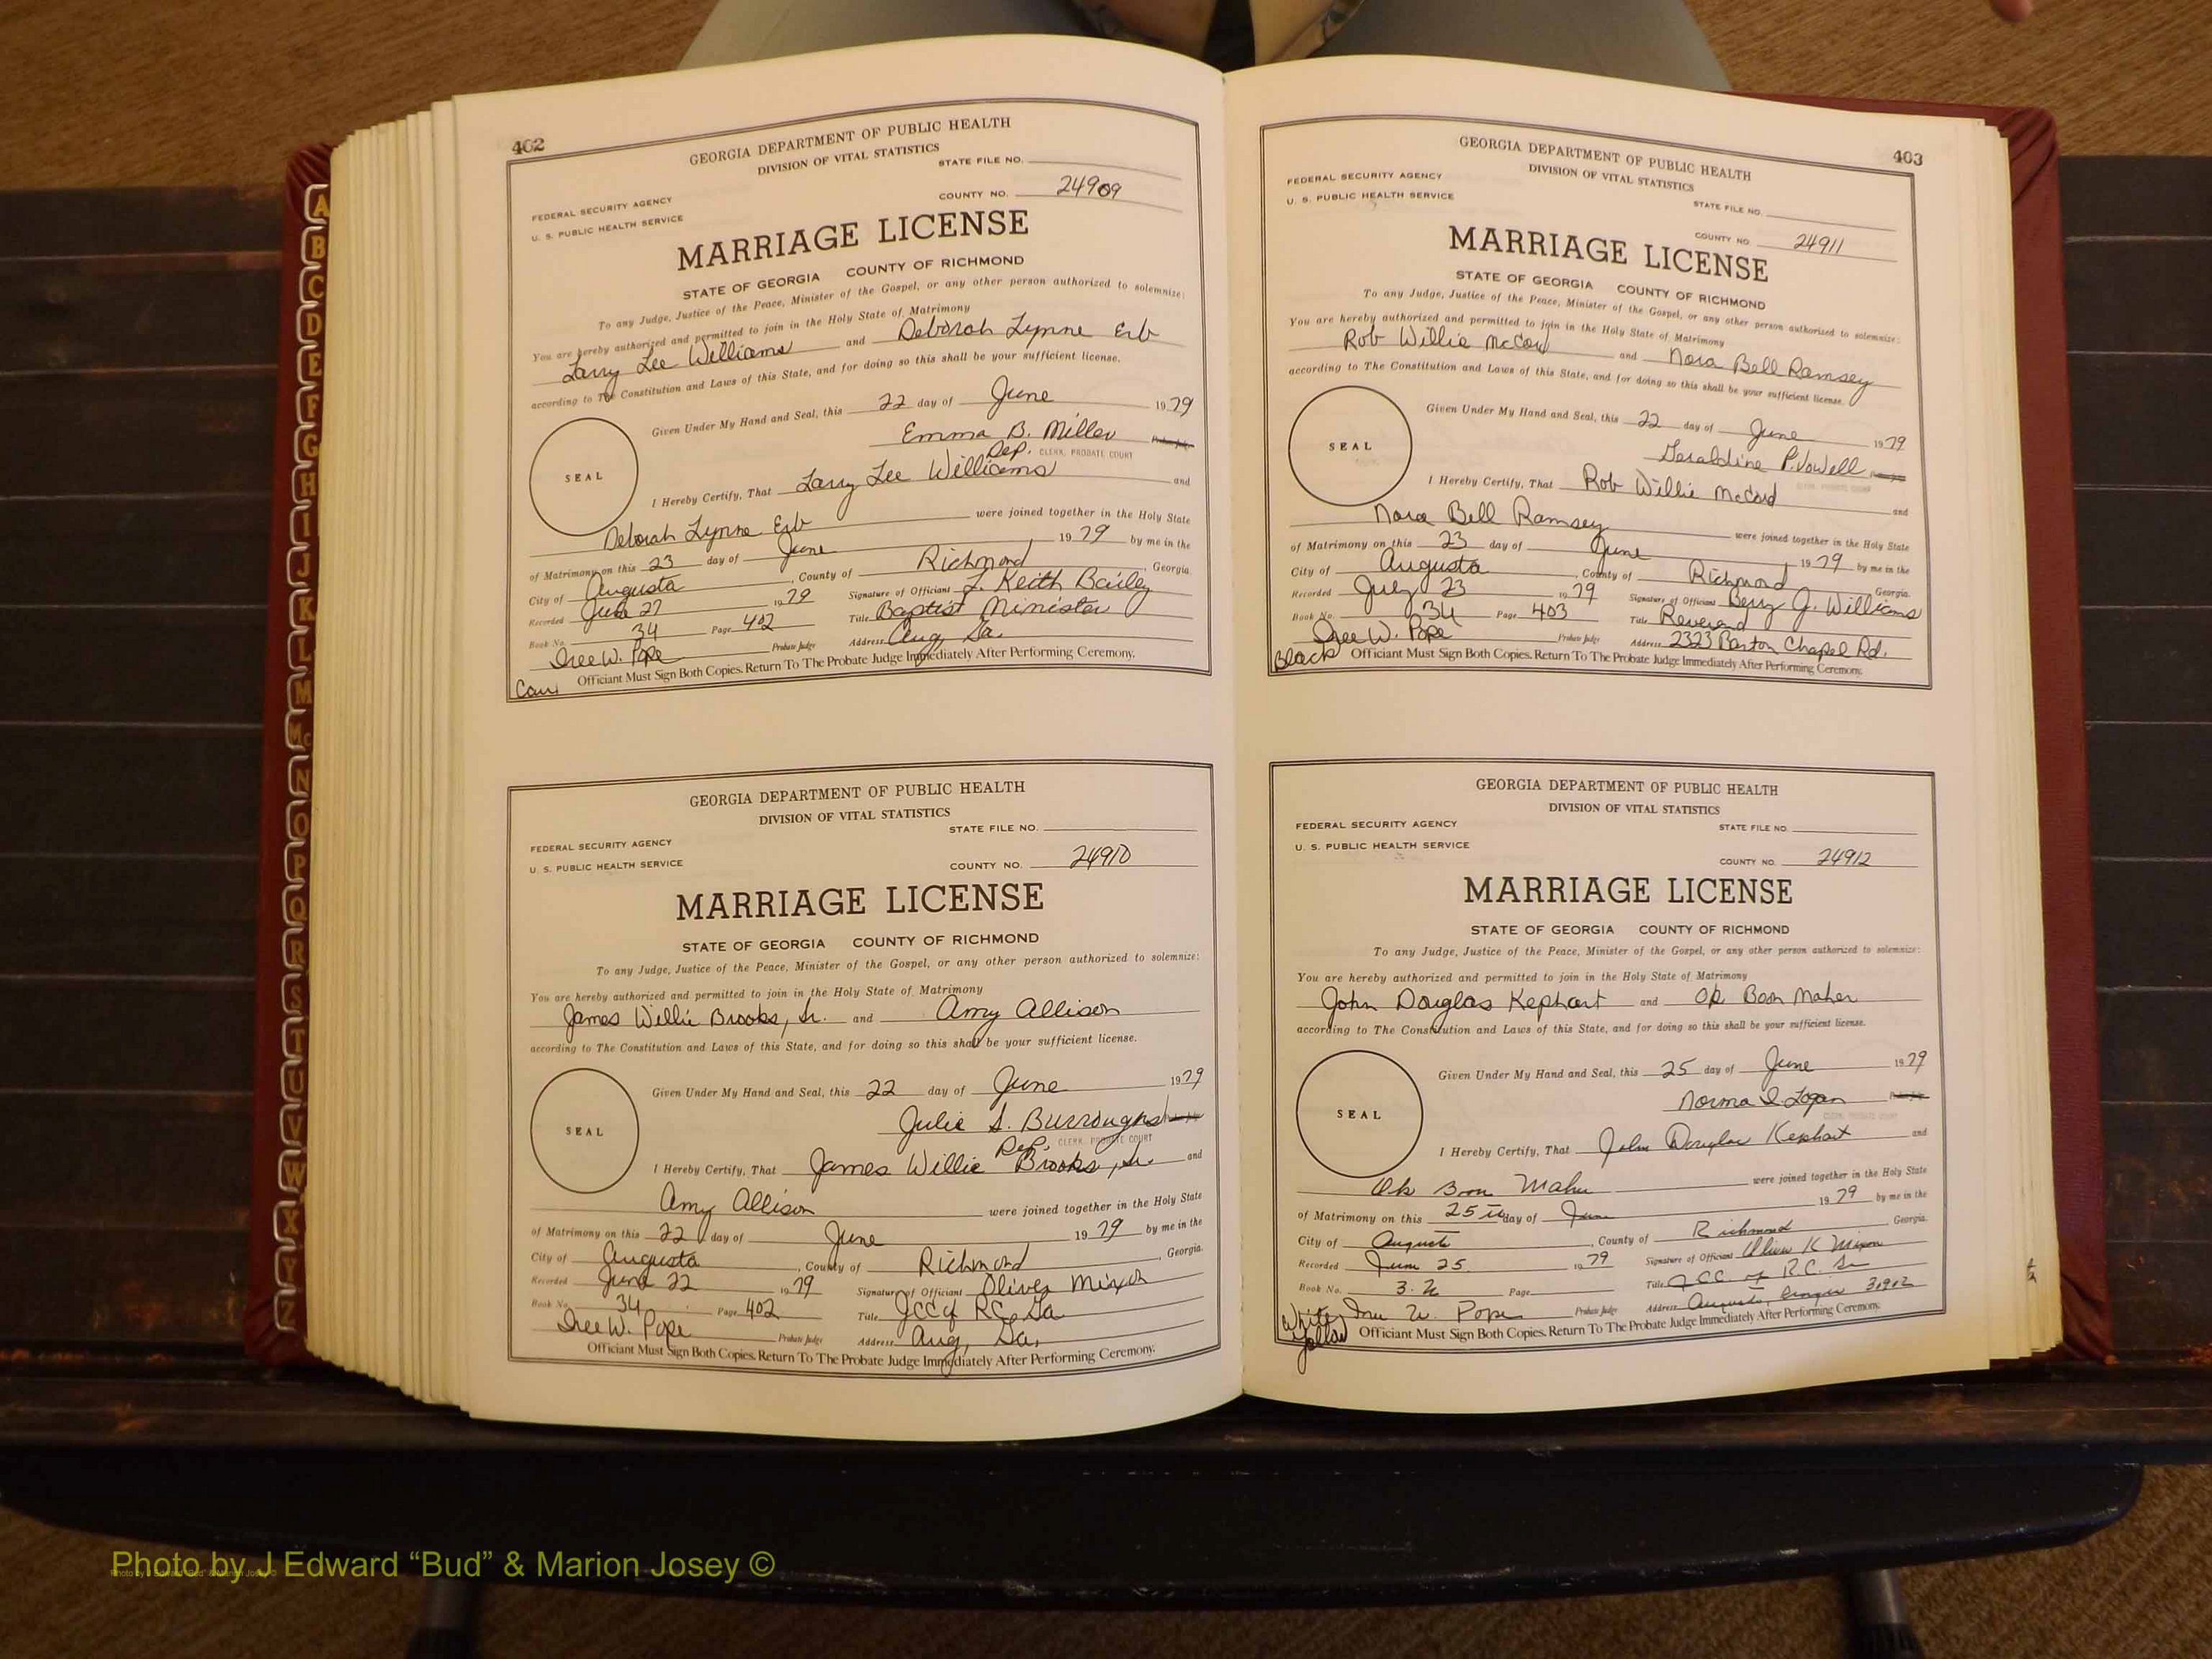 402
GEORGIA DEPARTMENT OF PUBLIC HEALTH
DIVISION OF VITAL STATISTICS
STATE FILE NO.
FEDERAL SECURITY AGENCY
U. S. PUBLIC HEALTH SERVICE
COUNTY NO. 24909
MARRIAGE LICENSE
STATE OF GEORGIA COUNTY OF RICHMOND
To any Judge, Justice of the Peace, Minister of the Gospel, or any other person authorized to solemnize:
You are hereby authorized and permitted to join in the Holy State of Matrimony
Larry Lee Williams and Deborah Lynne Erb
according to The Constitution and Laws of this State, and for doing so this shall be your sufficient license.
Given Under My Hand and Seal, this 22 day of June 1979
Emma B. Miller
Dep. CLERK, PROBATE COURT
SEAL
I Hereby Certify, That Larry Lee Williams and
Deborah Lynne Erb were joined together in the Holy State
of Matrimony on this 23 day of June 1979 by me in the
City of Augusta, County of Richmond, Georgia.
Recorded June 27 1979 Signature of Officiant L. Keith Bailey
Book No. 34 Page 402 Title Baptist Minister
Iree W. Pope Probate Judge Address Aug, Ga.
Cau Officiant Must Sign Both Copies. Return To The Probate Judge Immediately After Performing Ceremony.
GEORGIA DEPARTMENT OF PUBLIC HEALTH
DIVISION OF VITAL STATISTICS
STATE FILE NO.
FEDERAL SECURITY AGENCY
U. S. PUBLIC HEALTH SERVICE
COUNTY NO. 24910
MARRIAGE LICENSE
STATE OF GEORGIA COUNTY OF RICHMOND
To any Judge, Justice of the Peace, Minister of the Gospel, or any other person authorized to solemnize:
You are hereby authorized and permitted to join in the Holy State of Matrimony
James Willie Brooks, Sr. and Amy Allison
according to The Constitution and Laws of this State, and for doing so this shall be your sufficient license.
Given Under My Hand and Seal, this 22 day of June 1979
Julie S. Burroughs
Dep. CLERK, PROBATE COURT
SEAL
I Hereby Certify, That James Willie Brooks, Sr. and
Amy Allison were joined together in the Holy State
of Matrimony on this 22 day of June 1979 by me in the
City of Augusta, County of Richmond, Georgia.
Recorded June 22 1979 Signature of Officiant Oliver Mixon
Book No. 34 Page 402 Title JCC of RC, Ga
Iree W. Pope Probate Judge Address Aug, Ga.
Officiant Must Sign Both Copies. Return To The Probate Judge Immediately After Performing Ceremony.
403
GEORGIA DEPARTMENT OF PUBLIC HEALTH
DIVISION OF VITAL STATISTICS
FEDERAL SECURITY AGENCY
U. S. PUBLIC HEALTH SERVICE
STATE FILE NO.
COUNTY NO. 24911
MARRIAGE LICENSE
STATE OF GEORGIA COUNTY OF RICHMOND
To any Judge, Justice of the Peace, Minister of the Gospel, or any other person authorized to solemnize:
You are hereby authorized and permitted to join in the Holy State of Matrimony
Rob Willie McCord and Nora Bell Ramsey
according to The Constitution and Laws of this State, and for doing so this shall be your sufficient license.
Given Under My Hand and Seal, this 22 day of June 1979
Geraldine P. Vowell
SEAL
I Hereby Certify, That Rob Willie McCord and
Nora Bell Ramsey were joined together in the Holy State
of Matrimony on this 23 day of June 1979 by me in the
City of Augusta, County of Richmond Georgia.
Recorded July 23 1979 Signature of Officiant Berry J. Williams
Book No. 34 Page 403 Title Reverend
Iree W. Pope Probate Judge Address 2323 Barton Chapel Rd.
Black Officiant Must Sign Both Copies. Return To The Probate Judge Immediately After Performing Ceremony.
GEORGIA DEPARTMENT OF PUBLIC HEALTH
DIVISION OF VITAL STATISTICS
FEDERAL SECURITY AGENCY
STATE FILE NO.
U. S. PUBLIC HEALTH SERVICE
COUNTY NO. 24912
MARRIAGE LICENSE
STATE OF GEORGIA COUNTY OF RICHMOND
To any Judge, Justice of the Peace, Minister of the Gospel, or any other person authorized to solemnize:
You are hereby authorized and permitted to join in the Holy State of Matrimony
John Douglas Kephart and Ok Boon Maher
according to The Constitution and Laws of this State, and for doing so this shall be your sufficient license.
Given Under My Hand and Seal, this 25 day of June 1979
Norma I. Logan
SEAL
I Hereby Certify, That John Douglas Kephart and
Ok Boon Maher were joined together in the Holy State
of Matrimony on this 25 day of June 1979 by me in the
City of Augusta, County of Richmond, Georgia.
Recorded June 25 1979 Signature of Officiant Oliver K Mixon
Book No. Page Title JCC of R.C. Ga
W. Pope Probate Judge Address Augusta, Georgia 30902
White Yellow Officiant Must Sign Both Copies. Return To The Probate Judge Immediately After Performing Ceremony.
A
B
C
D
E
F
G
H
I
J
K
L
M
Mc
N
O
P
Q
R
S
T
U
V
W
X
Y
Z
Photo by J Edward “Bud” & Marion Josey ©